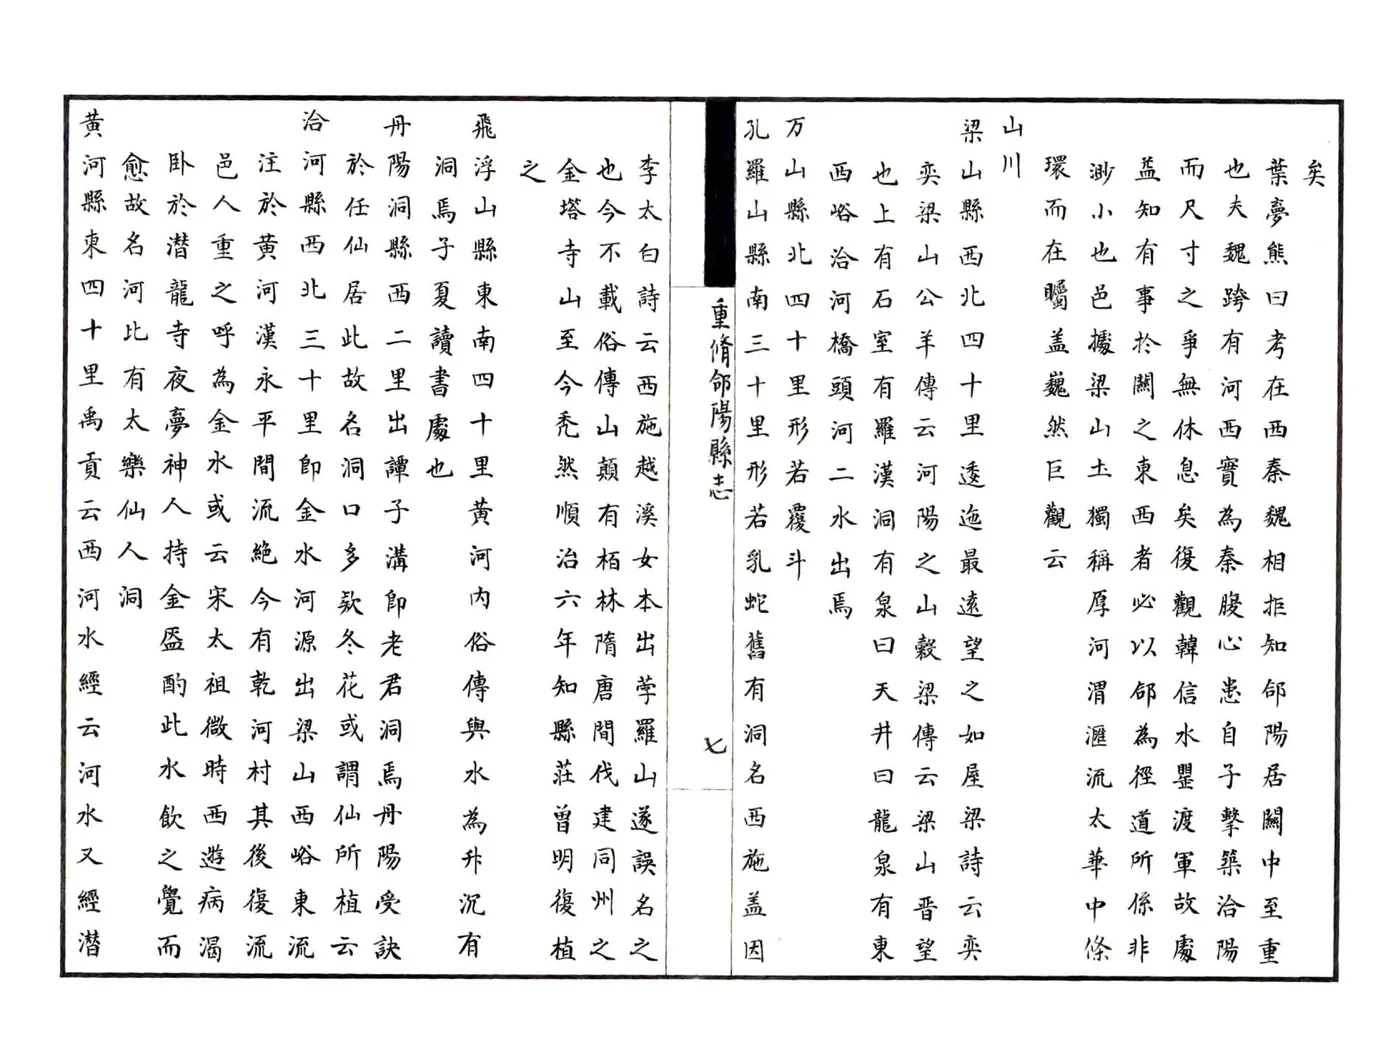 矣
葉夢熊曰考在西秦魏相拒知郃陽居關中至重
也夫魏跨有河西實為秦腹心患自子擊築洽陽
而尺寸之爭無休息矣復觀韓信水甖渡軍故處
益知有事於關之東西者必以郃為徑道所係非
渺小也邑據梁山土獨稱厚河渭滙流太華中條
環而在矚盖巍然巨觀云
山川
梁山縣西北四十里逶迤最遠望之如屋梁詩云奕
奕梁山公羊傳云河陽之山穀梁傳云梁山晋望
也上有石室有羅漢洞有泉曰天井曰龍泉有東
西峪洽河橋頭河二水出焉
万山縣北四十里形若覆斗
孔羅山縣南三十里形若乳蛇舊有洞名西施盖因
重脩郃陽縣志
七
李太白詩云西施越溪女本出苧羅山遂誤名之
也今不載俗傳山顛有栢林隋唐間伐建同州之
金塔寺山至今秃然順治六年知縣莊曾明復植
之
飛浮山縣東南四十里黄河内俗傳與水為升沉有
洞焉子夏讀書處也
丹陽洞縣西二里出譚子溝即老君洞焉丹陽受訣
於任仙居此故名洞口多欵冬花或謂仙所植云
洽河縣西北三十里即金水河源出梁山西峪東流
注於黄河漢永平間流絶今有乾河村其後復流
邑人重之呼為金水或云宋太祖微時西遊病渴
卧於潛龍寺夜夢神人持金盃酌此水飲之覺而
愈故名河北有太樂仙人洞
黄河縣東四十里禹貢云西河水經云河水又經潛